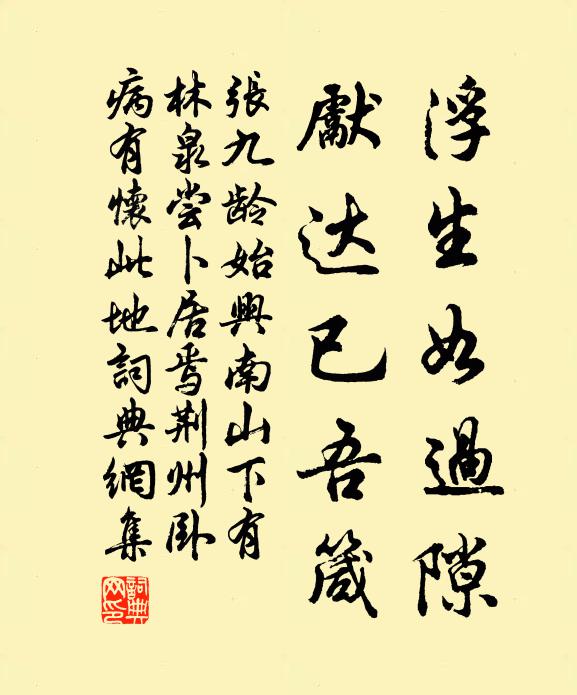 浮生如過隙
獻达已吾箴
張九龄始興南山下有
林泉尝卜居焉荆州卧
病有懷此地詞典網集
詞典
网印